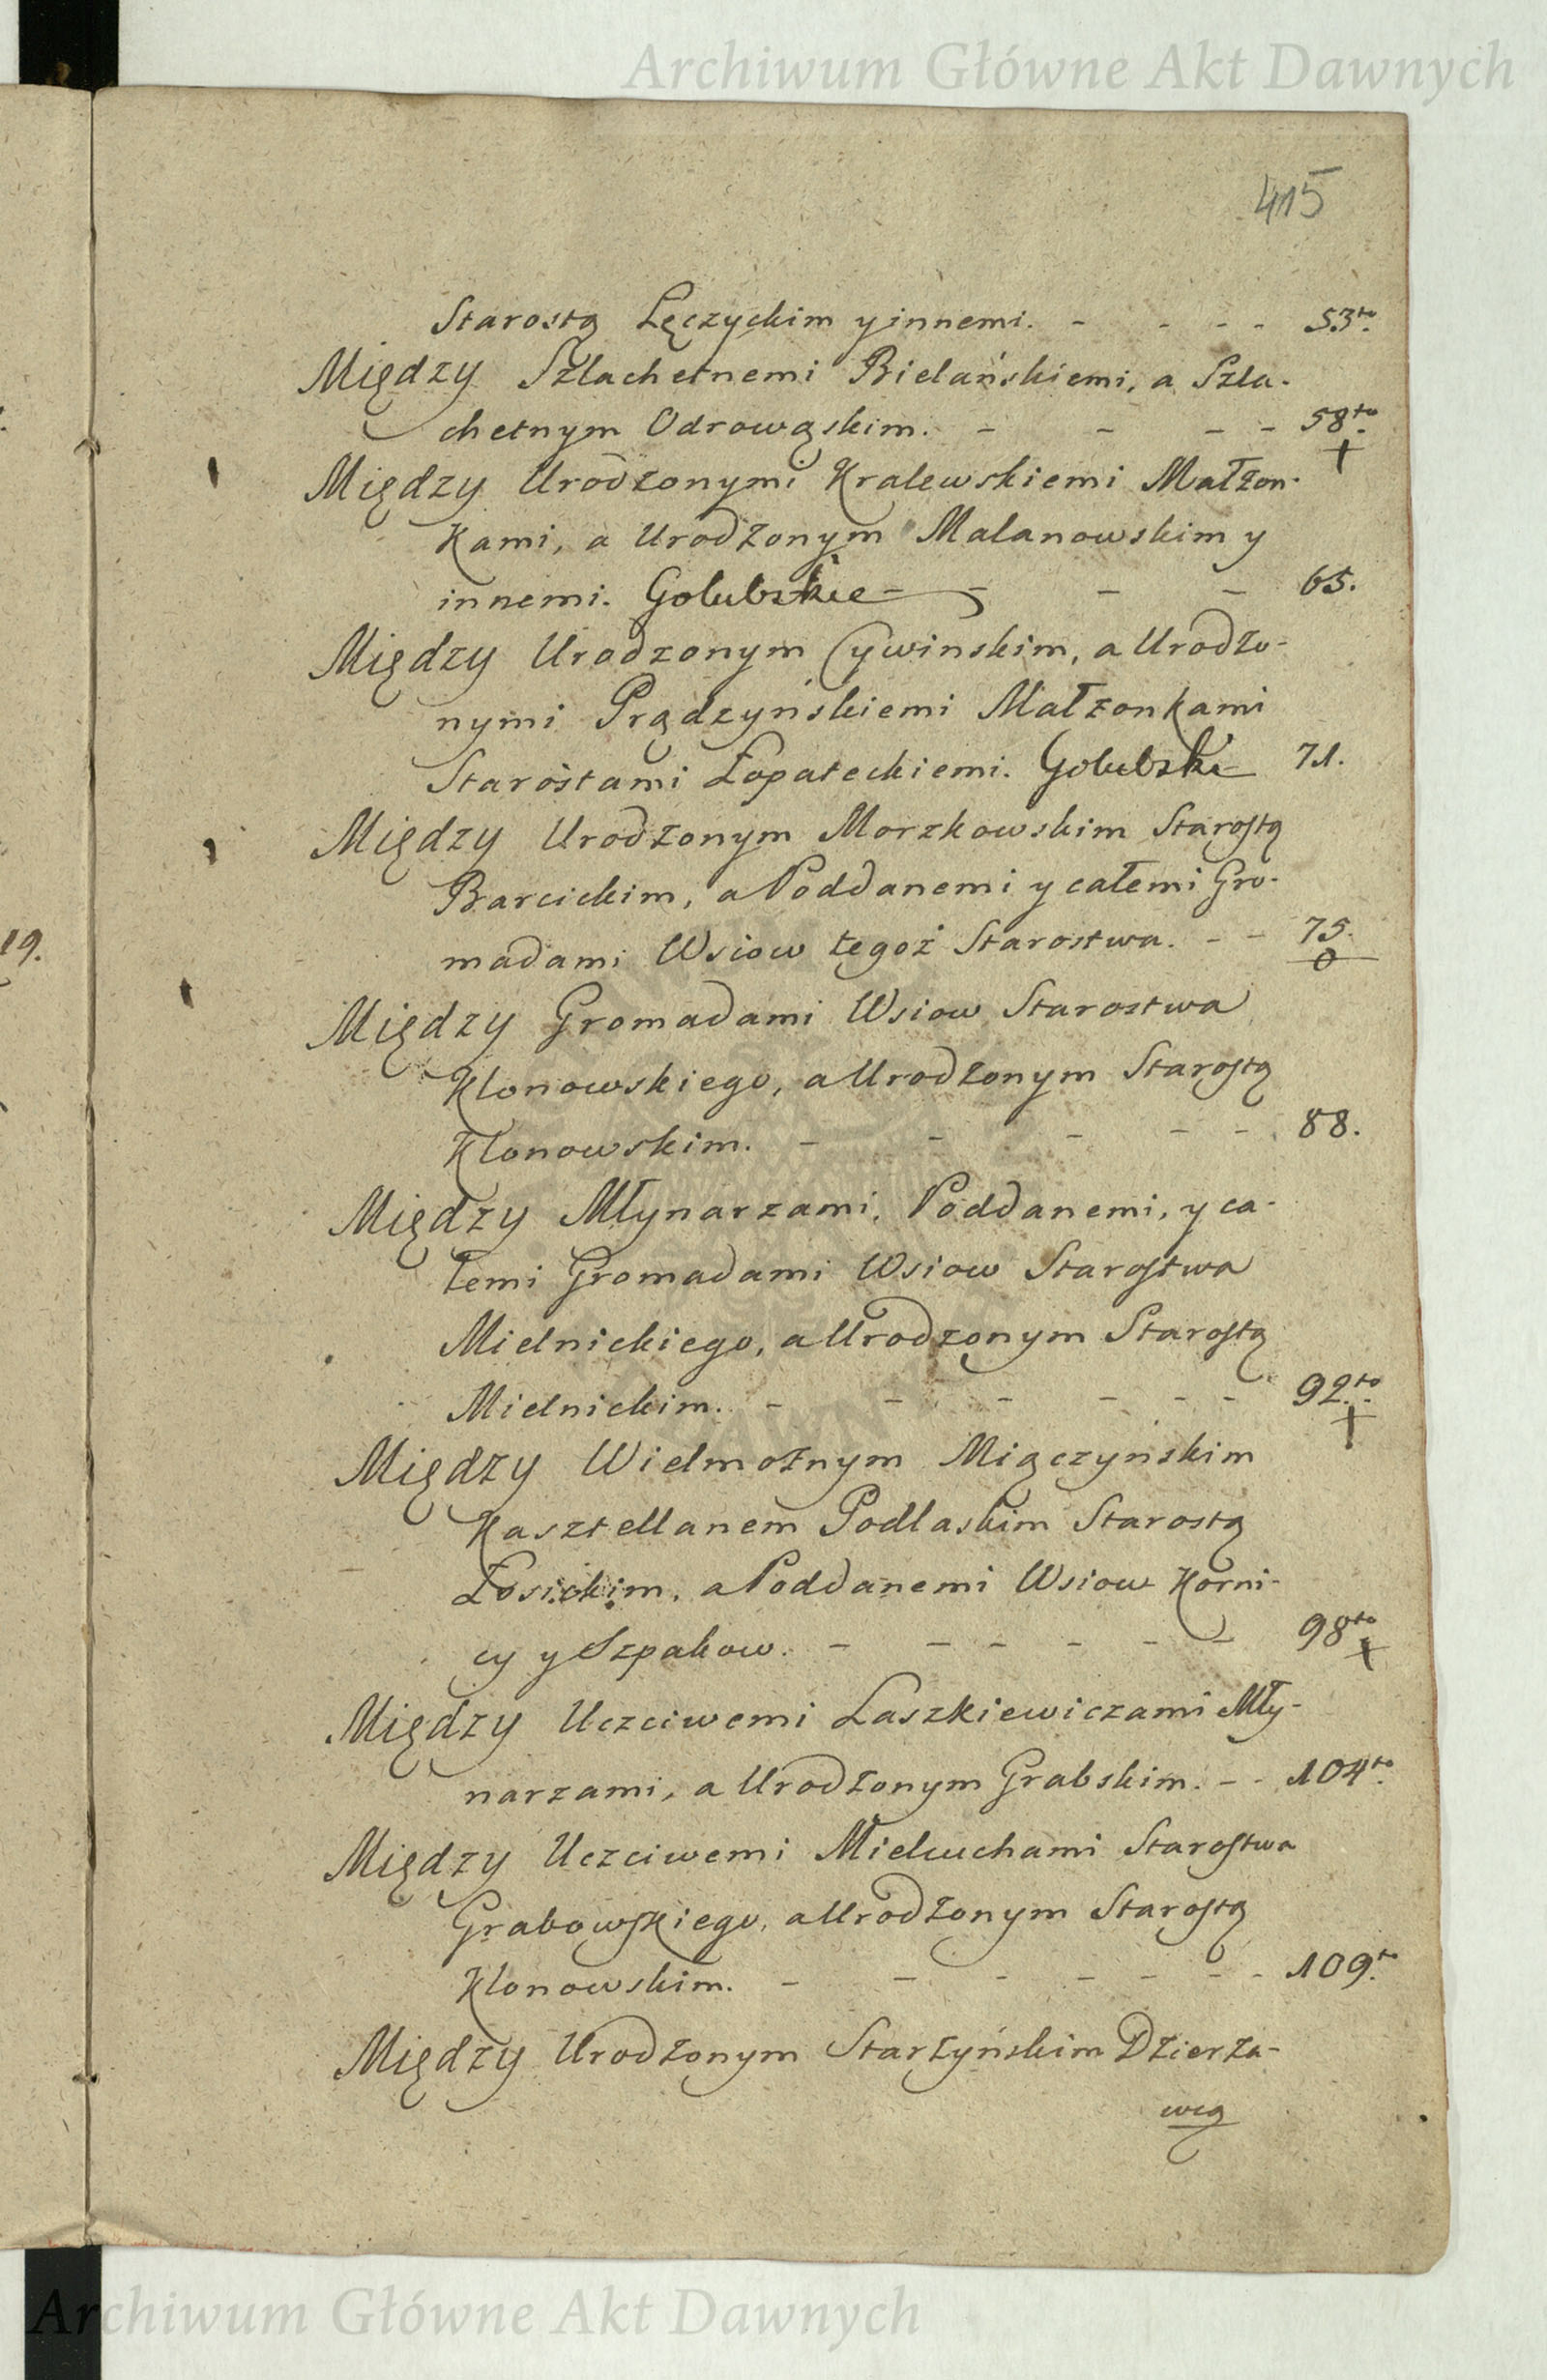 Archiwum Główne Akt Dawnych
415
Starostą Łęczyckim y innemi. - - - - 53to.
Między Szlachetnemi Bielańskiemi, a Szla-
chetnym Odrowąskim. - - - - 58to.
+
Między Urodzonymi Kralewskiemi Małżon-
kami, a Urodzonym Malanowskim y
innemi. Golubskie - - - 65.
Między Urodzonym Cywinskim, a Urodzo-
nymi Prądzyńskiemi Małżonkami
Starostami Łopateckiemi. Golubskie 71.
Między Urodzonym Morzkowskim Starostą
Barcickim, a Poddanemi y całemi Gro-
madami Wsiow tegoż Starostwa. - - 75.
19.
Między Gromadami Wsiow Starostwa
Klonowskiego, a Urodzonym Starostą
Klonowskim. - - - - - 88.
Między Młynarzami, Poddanemi, y ca-
łemi Gromadami Wsiow Starostwa
Mielnickiego, a Urodzonym Starostą
Mielnickim. - - - - - - 92to.
+
Między Wielmożnym Miączyńskim
Kasztellanem Podlaskim Starostą
Łosickim, a Poddanemi Wsiow Korni-
cy y Szpakow. - - - - - - 98to
+
Między Uczciwemi Laszkiewiczami Mły-
narzami, a Urodzonym Grabskim. - - 104to.
Między Uczciwemi Mielcuchami Starostwa
Grabowskiego, a Urodzonym Starostą
Klonowskim. - - - - - - - 109to.
Między Urodzonym Starzyńskim Dzierża-
wcą
Archiwum Główne Akt Dawnych